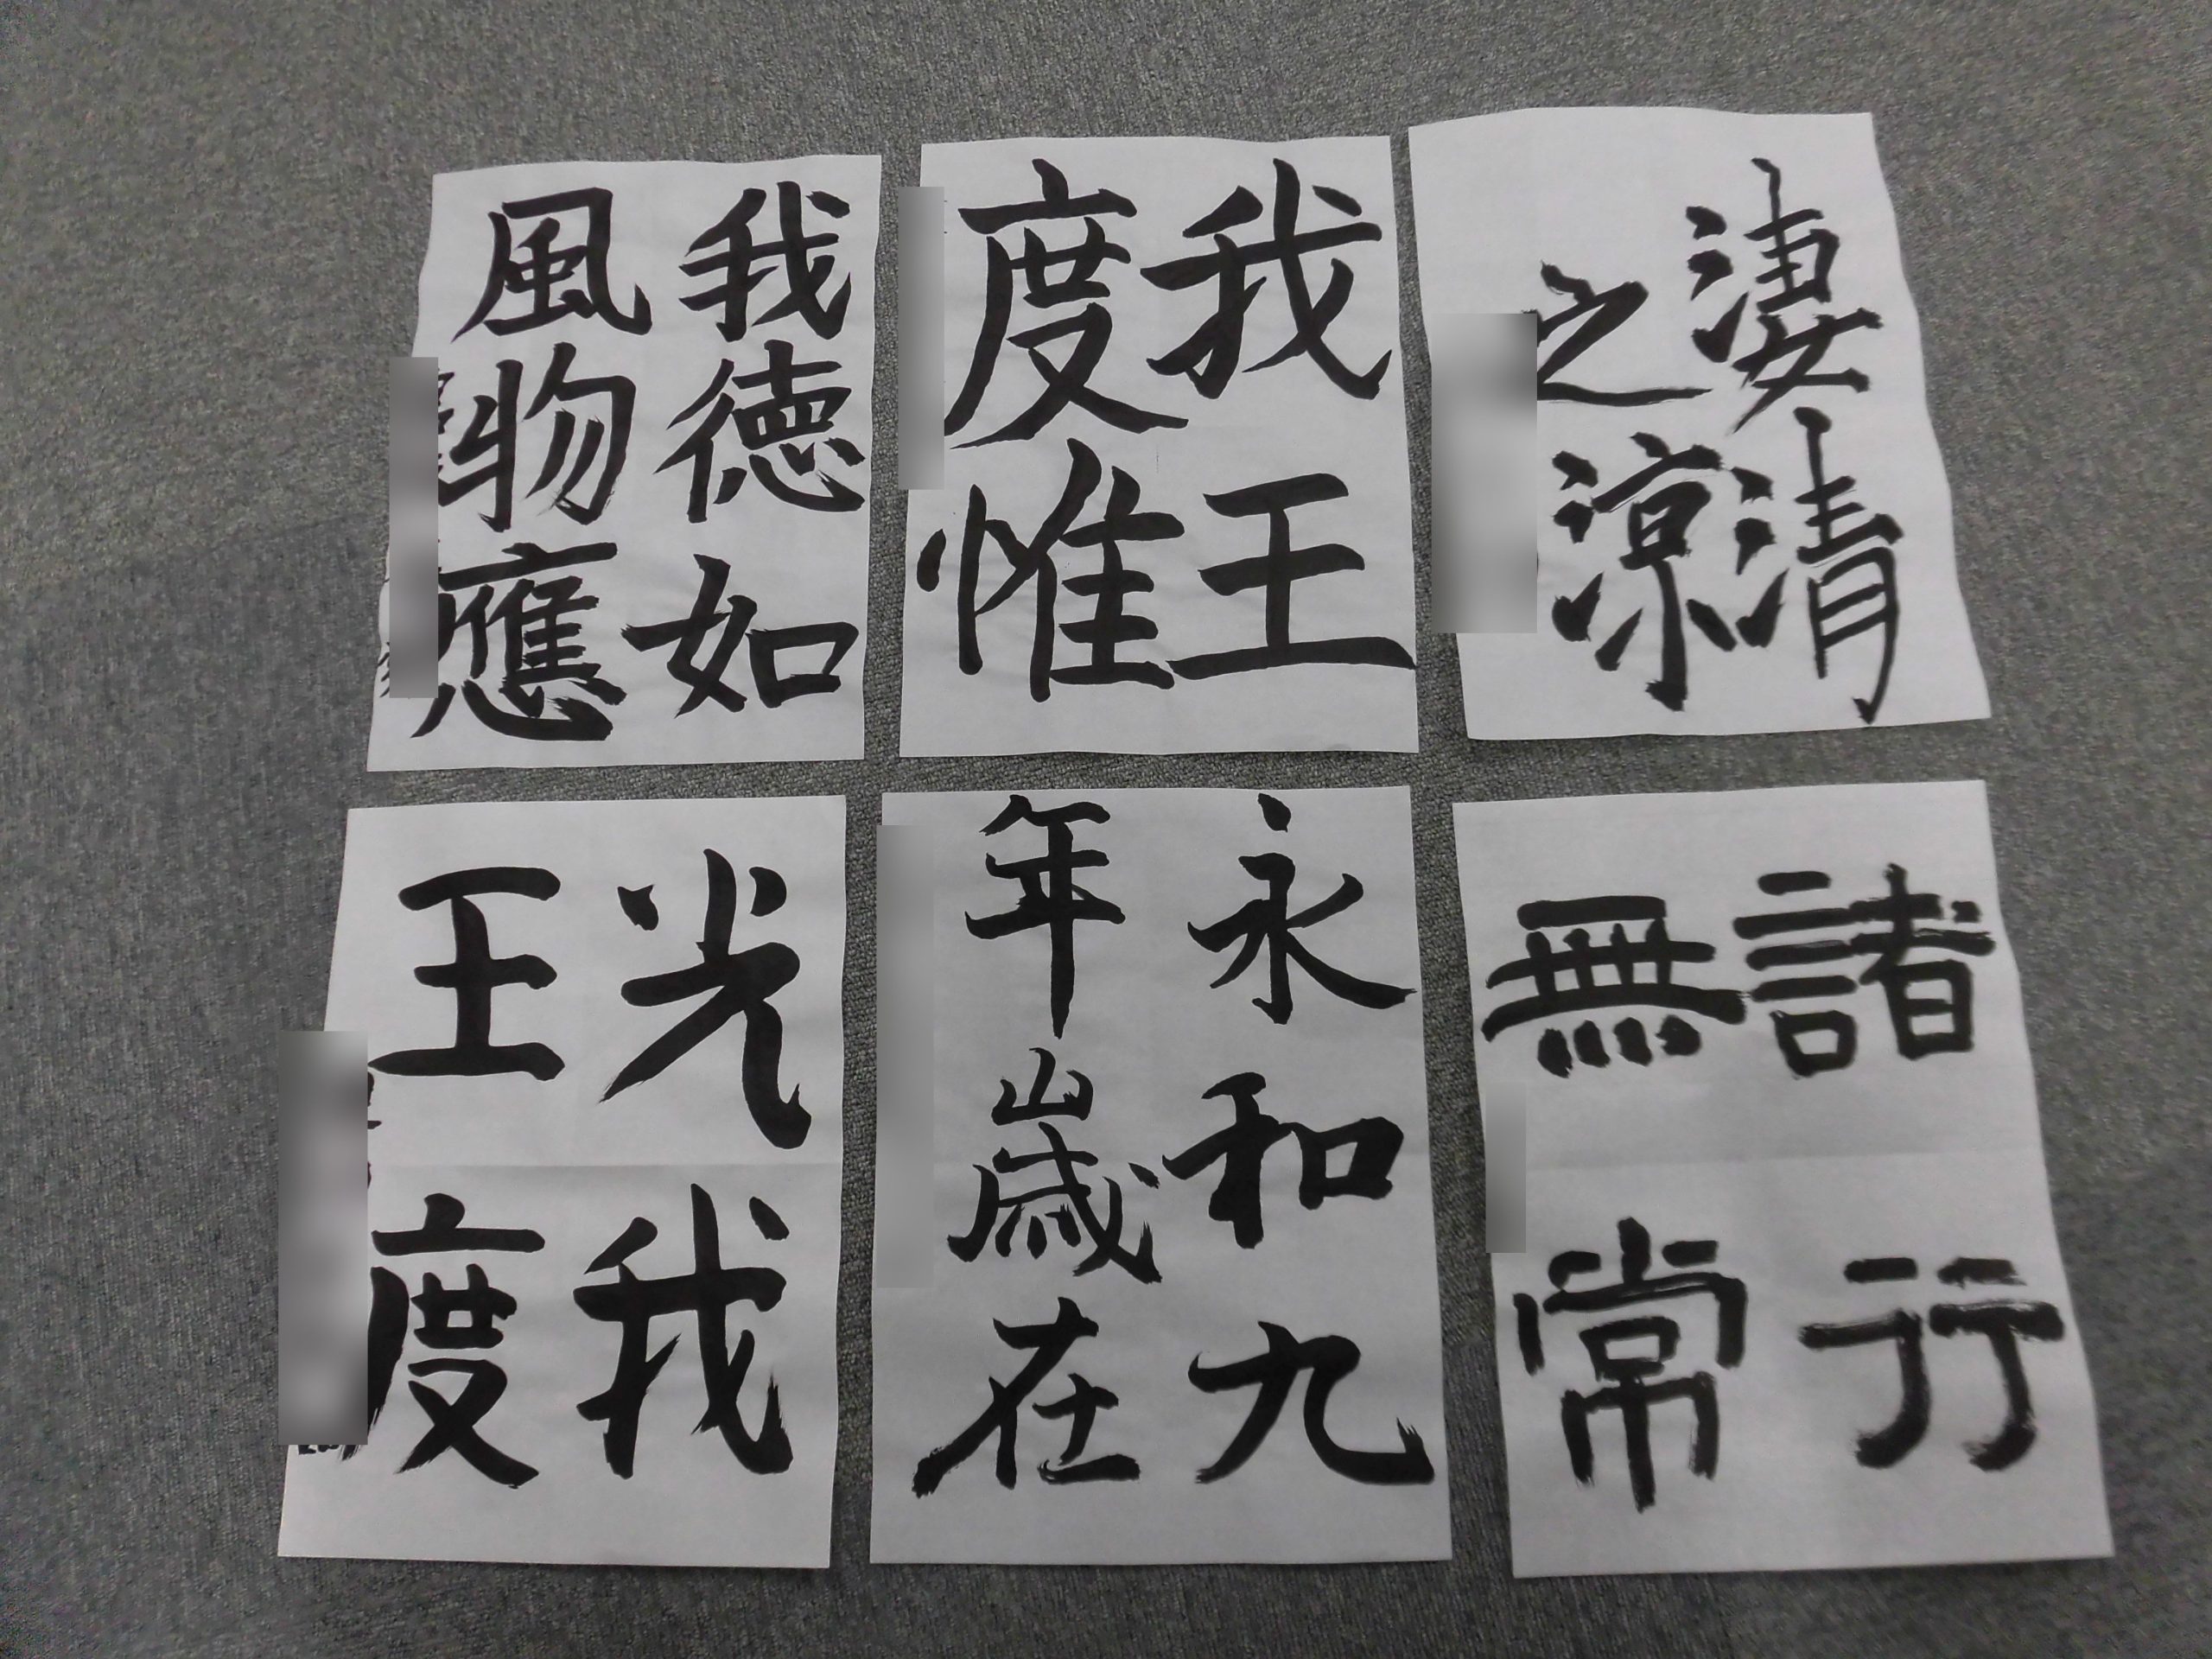 淒清
之涼
我王
度惟
我徳如
風物應
諸行
無常
永和九
年歳在
光我
王度